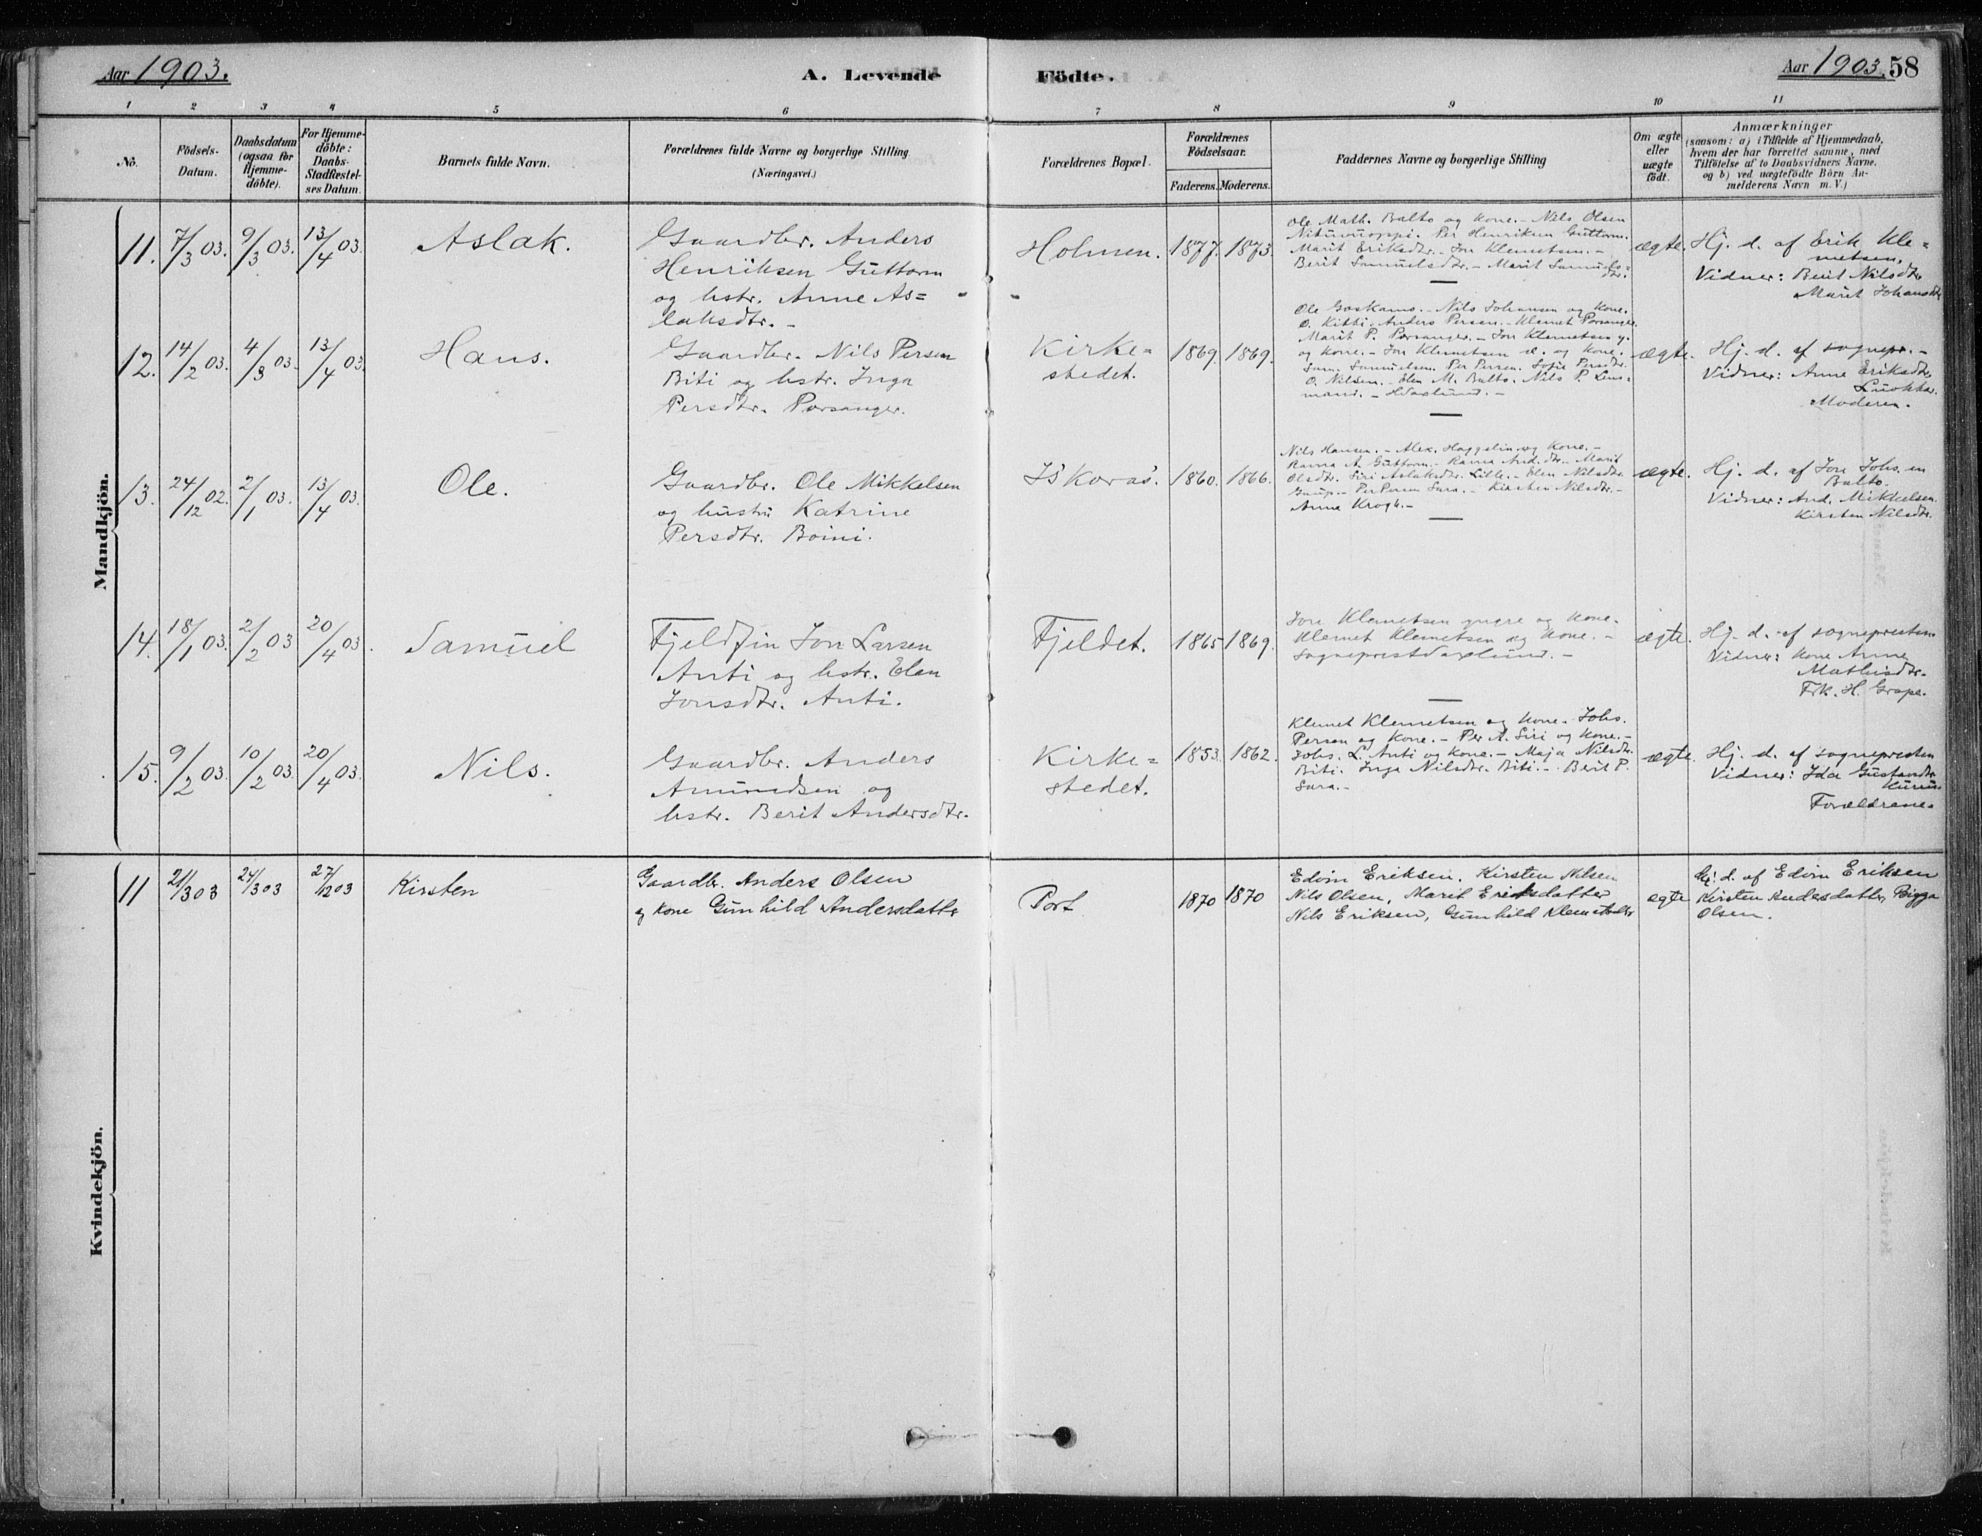 Aar 1903.
A. Levende Födte.
Aar 1903. 58
1 2 3 4 5 6 7 8 9 10 11
No.
Födsels-
Datum.
Daabsdatum
(ogsaa for
Hjemme-
döbte).
For Hjemme-
döbte:
Daabs-
Stadfæstel-
ses Datum.
Barnets fulde Navn.
Forældrenes fulde Navne og borgerlige Stilling
(Næringsvei.)
Forældrenes Bopæl.
Forældrenes
Födselsaar.
Faderens. Moderens.
Faddernes Navne og borgerlige Stilling
Om ægte
eller
uægte
födt.
Anmærkninger
(saasom: a) i Tilfælde af Hjemmedaab,
hvem der har forrettet samme, med
Tilföielse af to Daabsvidners Navne.
og b) ved uægtefödte Börn An-
melderens Navn m. V.)
Mandkjön.
11. 7/3 03. 9/3 03. 13/4 03. Aslak.
Gaardbr. Anders
Henriksen Guttorm
og hstr. Anne As=
laksdtr. -
Holmen. 1877. 1873.
Ole Math. Balto og kone. - Nils Olsen
Per Henriksen Guttorm.
Marit Eriksdtr. - Jon Klemetsen. -
Berit Samuelsdtr. - Marit Samuels=
dtr.
ægte.
Hj. d. af Erik Kle=
metsen.
Vidner: Berit Nilsdtr.
Marit Johansdtr
12. 14/2 03. 4/3 03. 13/4 03. Hans.
Gaardbr. Nils Persen
Biti og hstr. Inga
Persdtr. Porsanger.
Kirke=
stedet.
1869. 1869.
Ole Goskamo. - Nils Johansen og Kone.
O. Kitti. Anders Persen. - Klemet Porsanger.
Marit P. Porsanger. - Jon Klemetsen y.
og kone. - Jon Klemetsen æ. og kone.
Sam. Samuelsen. Per Persen. Sofie Persdtr.
O. Nilsen. - Elen M. Balto. Nils P. Lens=
mand. -
ægte.
Hj. d. af sognepr. -
Vidner: Anne Eriksdtr.
Moderen.
13. 24/12 02. 2/1 03. 13/4 03. Ole.
Gaardbr. Ole Mikkelsen
og hustru Katrine
Persdtr. Boini.
Is'koras'. 1860. 1866.
Nils Hansen. - Alex. Haggelin og Kone. -
Ravna A. Guttorm. - Ravna And.dtr. Marit
Olsdtr. Siri Aslaksdtr. Lille. - Elen Nilsdtr.
Gaup. - Per Persen Sara. - Kirsten Nilsdtr. -
Anne Krogh. -
ægte.
Hj. d. af Jon Johs.en
Balto.
Vidner: And. Mikkelsen.
Kirsten Nilsdtr.
14. 18/1 03. 2/2 03 20/4 03. Samuel
Fjeldfin Jon Larsen
Anti og hstr. Elen
Jonsdtr. Anti.
Fjeldet. 1865 1869.
Jon Klemetsen yngre og Kone.
Klemet Klemetsen og Kone. -
ægte.
Hj. d. af sogneprestem
Vidner: Kone Anne
Mathisdtr.
Frk. H. Grape.
15. 9/2 03. 10/2 03. 20/4 03. Nils.
Gaardbr. Anders
Amundsen og
hstr. Berit Andersdtr.
Kirke=
stedet.
1853. 1862.
Klemet Klemetsen og Kone. Johs.
Persen og Kone. - Per A. Siri og Kone. -
Johs. L. Anti og Kone. - Maja Nilsdtr.
Biti. Inga Nilsdtr. Biti. - Berit P.
Sara. -
ægte.
Hj. d. af sognepresten
Vidner: Ida Gustavsdtr
Forældrene.
Kvindekjön.
11 21/3 03 24/3 03 27/12 03 Kirsten
Gaardbr. Anders Olsen
og Kone Gunhild Andersdatter
Port 1870 1870
Edvin Eriksen. Kirsten Nilsen
Nils Olsen, Marit Eriksdatter
Nils Eriksen, Gunhild Klemetsdtr
ægte
Hj. d. af Edvin Eriksen
Kirsten Andersdatter, Bigga
Olsen.